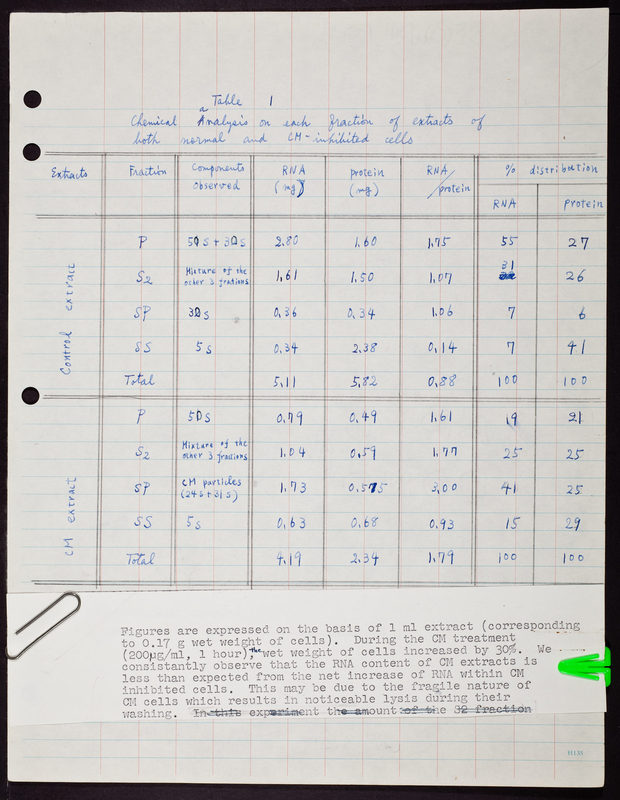 Table 1
Chemical Analysis on each fraction of extracts of
both normal and CM-inhibited cells
Extracts Fraction Components observed RNA (mg) protein (mg) RNA/protein % distribution
RNA protein
Control extract
P 50s+30s 2.80 1.60 1.75 55 27
S2 Mixture of the other 3 frations 1.61 1.50 1.07 31 26
SP 30s 0.36 0.34 1.06 7 6
SS 5s 0.34 2.38 0.14 7 41
Total 5.11 5.82 0.88 100 100
CM extract
P 50s 0.79 0.49 1.61 19 21
S2 Mixture of the other 3 frations 1.04 0.59 1.77 25 25
SP CM particles (24s+31s) 1.73 0.575 3.00 41 25
SS 5s 0.63 0.68 0.93 15 29
Total 4.19 2.34 1.79 100 100
Figures are expressed on the basis of 1 ml extract (corresponding
to 0.17 g wet weight of cells). During the CM treatment
(200µg/ml, 1 hour), the wet weight of cells increased by 30%. We
consistantly observe that the RNA content of CM extracts is
less than expected from the net increase of RNA within CM
inhibited cells. This may be due to the fragile nature of
CM cells which results in noticeable lysis during their
washing. In this experiment the amount of the S2 fraction